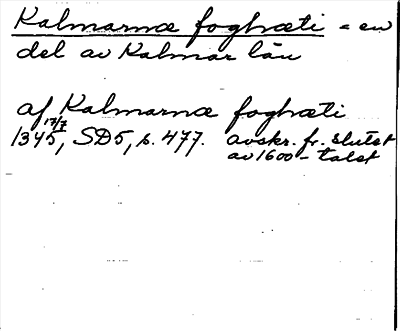 Kalmarnæ foghæti = en
del av Kalmar län
af Kalmarnæ foghæti
17/7
1345, SD5, s. 477. avskr. fr. slutet
av 1600-talet